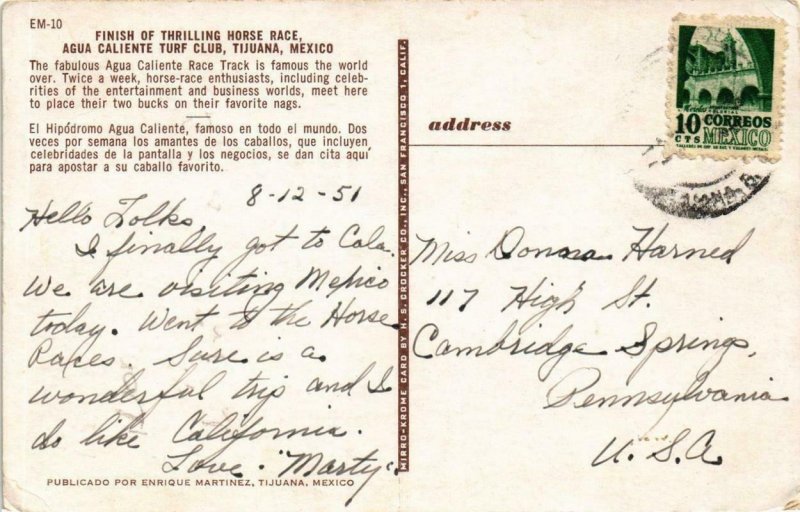 EM-10
FINISH OF THRILLING HORSE RACE,
AGUA CALIENTE TURF CLUB, TIJUANA, MEXICO
The fabulous Agua Caliente Race Track is famous the world
over. Twice a week, horse-race enthusiasts, including celeb-
rities of the entertainment and business worlds, meet here
to place their two bucks on their favorite nags.
El Hipódromo Agua Caliente, famoso en todo el mundo. Dos
veces por semana los amantes de los caballos, que incluyen
celebridades de la pantalla y los negocios, se dan cita aquí
para apostar a su caballo favorito.
8-12-51
Hello Folks
I finally got to Cala.
We are visiting Mexico
today. Went to the Horse
Races. Sure is a
wonderful trip and I
do like California.
Love "Marty".
PUBLICADO POR ENRIQUE MARTINEZ, TIJUANA, MEXICO
MIRRO-KROME CARD BY H. S. CROCKER CO., INC., SAN FRANCISCO 1, CALIF.
address
10 CORREOS
CTS MEXICO
Miss Donna Harned
117 High St.
Cambridge Springs,
Pennsylvania
U.S.A